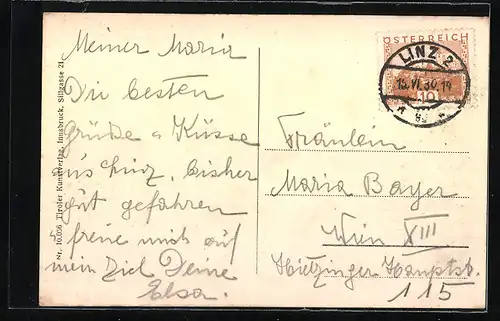 Meiner Maria
Die besten
Grüße u Küsse
aus Linz, bisher
gut gefahren
freue mich auf
mein Ziel Deine
Elsa.
Nr. 10.056 Tiroler Kunstverlag, Innsbruck, Sillgasse 21
ÖSTERREICH
10
LINZ 2
Fräulein
Maria Bayer
Wien XIII
Hietzinger Hauptstr.
115